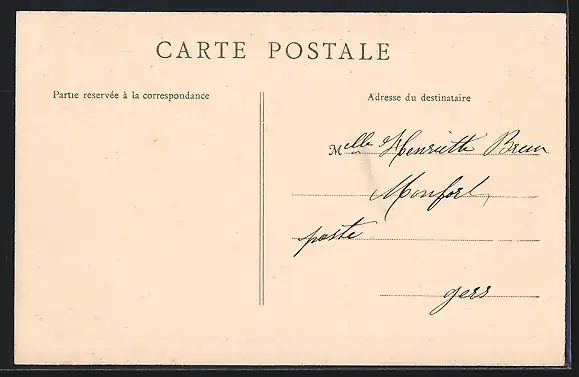 CARTE POSTALE
Partie réservée à la correspondance
Adresse du destinataire
Melle Henriette Brun
Monfort,
poste
gers